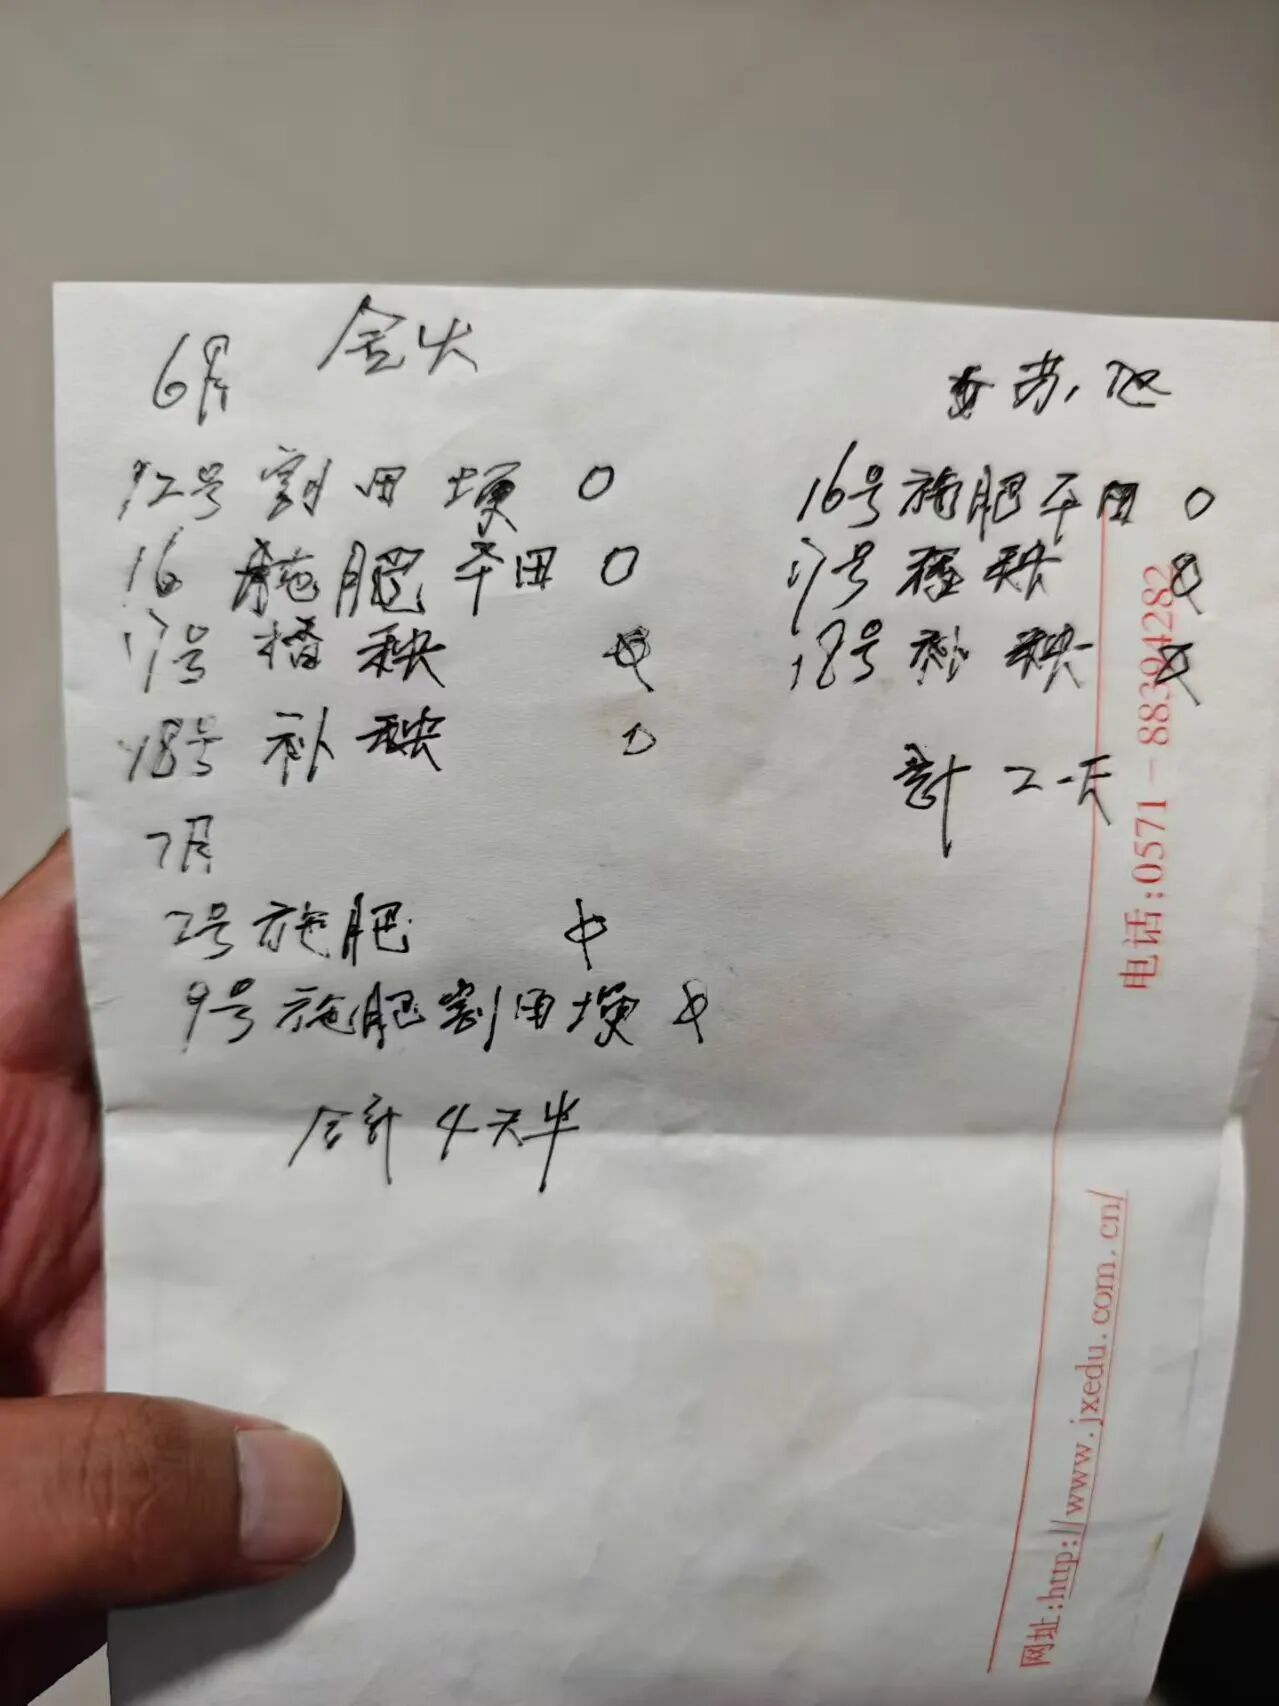 6月 金火
12号 割田埂 O
16 施肥平田 O
17号 插秧
18号 补秧
7月
2号施肥
9号施肥割田埂
合计 4天半
16号施肥平田 O
17号 种秧
18号 补秧
计 2天
电话:0571-88394282
网址:http://www.jxedu.com.cn/